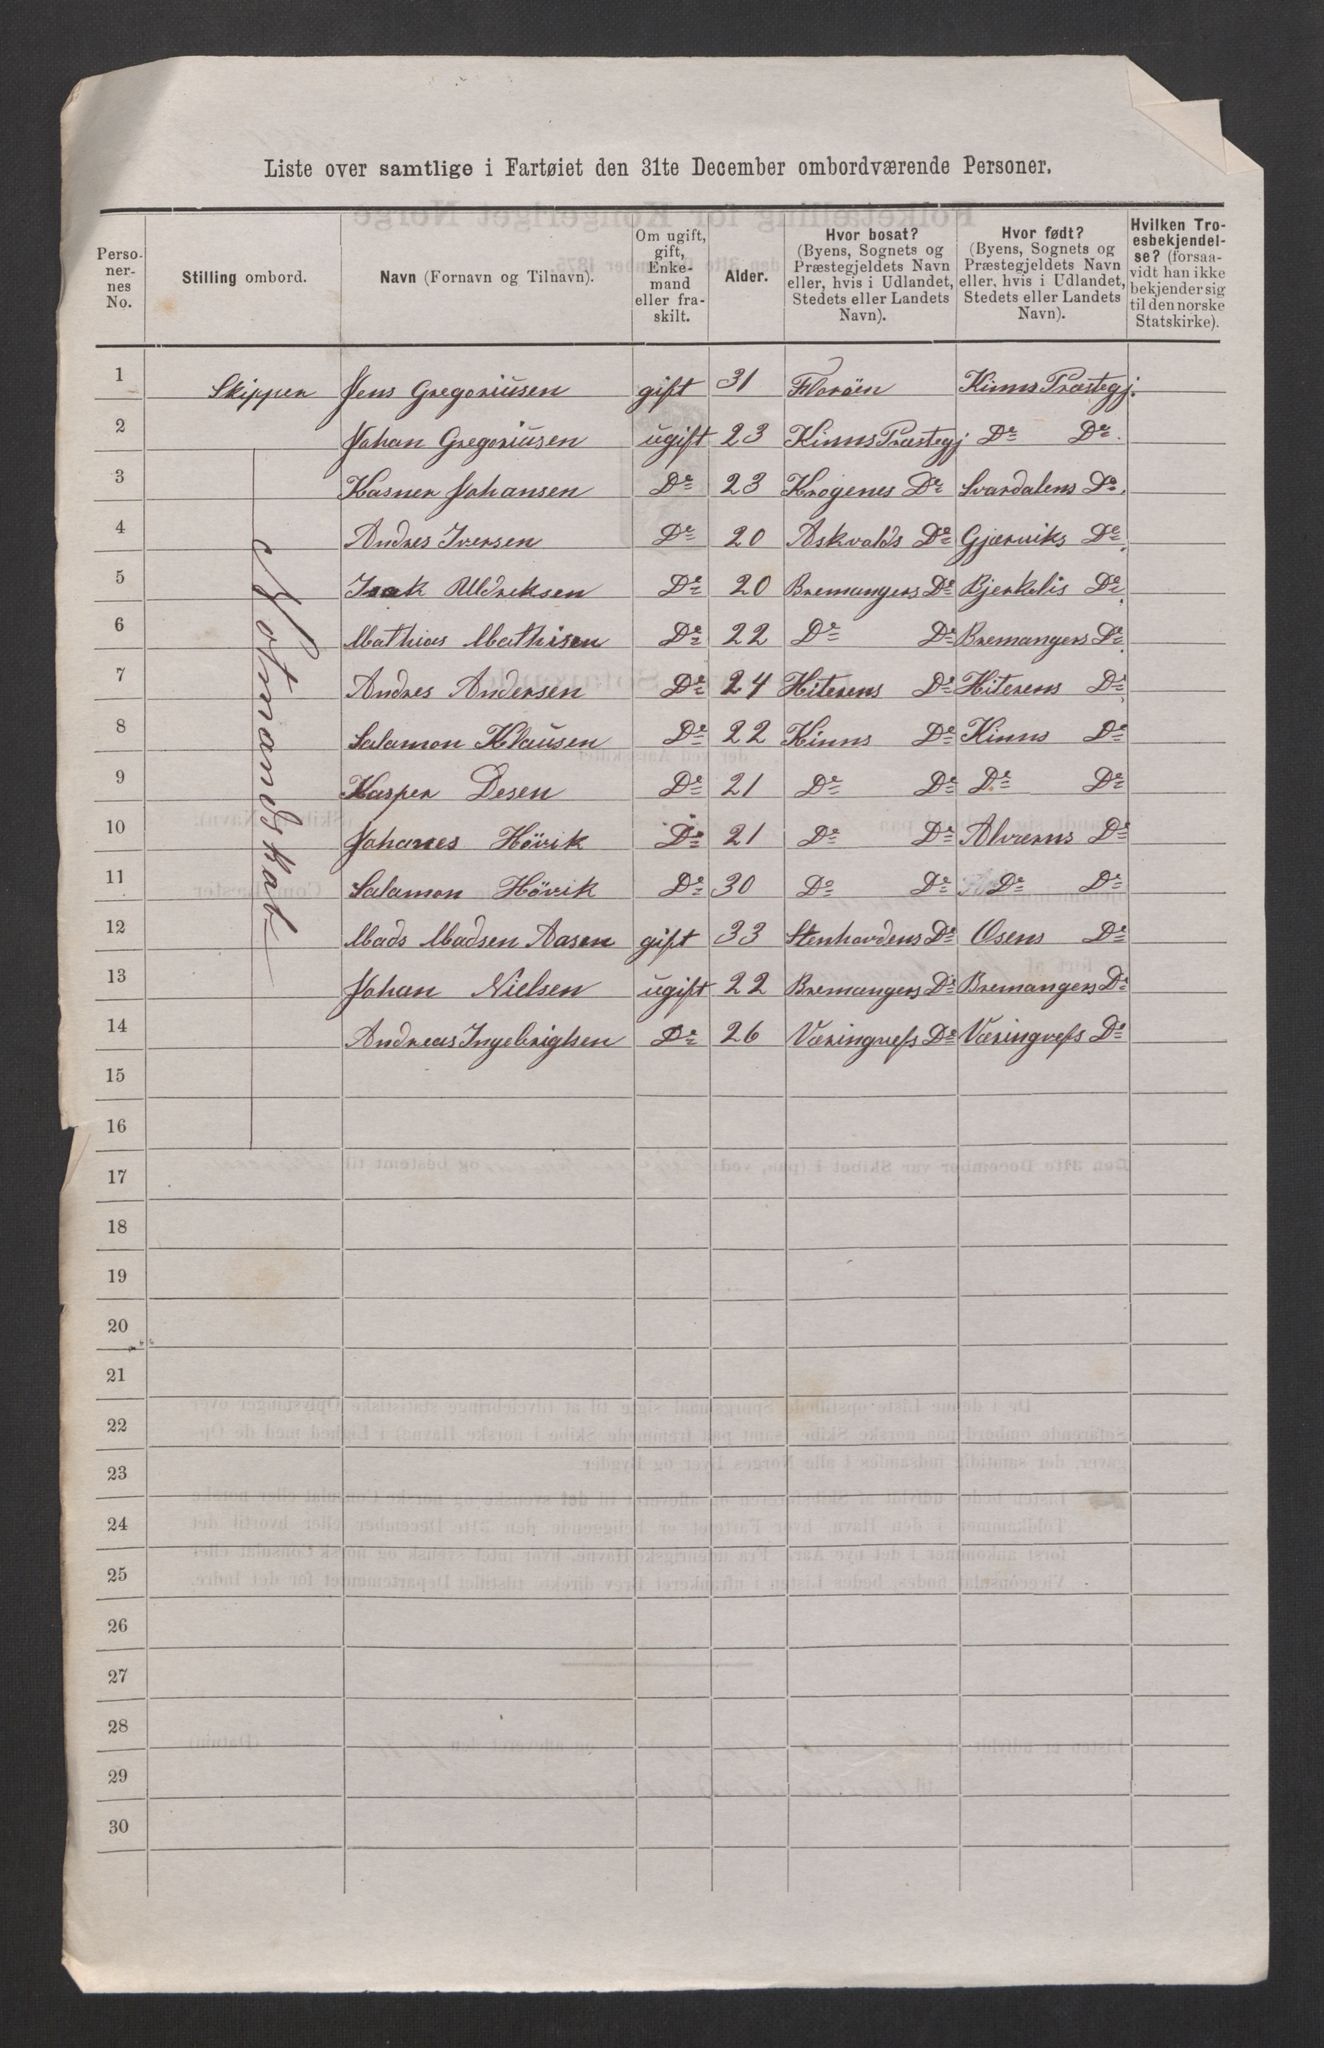 Liste over samtlige i Fartøiet den 31te December ombordværende Personer.
Perso-
ner-
nes
No.
Stilling ombord.
Navn (Fornavn og Tilnavn).
Om ugift,
gift,
Enke-
mand
eller fra-
skilt.
Alder.
Hvor bosat?
(Byens, Sognets og
Præstegjeldets Navn
eller, hvis i Udlandet,
Stedets eller Landets
Navn).
Hvor født?
(Byens, Sognets og
Præstegjeldets Navn
eller, hvis i Udlandet,
Stedets eller Landets
Navn).
Hvilken Tro-
esbekjendel-
se? (forsaa-
vidt han ikke
bekjender sig
til den norske
Statskirke).
1 Skipper Jens Gregoriusen gift 31 Florøen Kinns Præstegj.
2 Johan Gregoriusen ugift 23 Kinns Præstegj Do Do
3 Kasner Johansen Do 23 Krogenes Do Svardalens Do
4 Andres Iversen Do 20 Askvolds Do Gjærviks Do
5 Isak Uldreksen Do 20 Bremangers Do Bjerkelis Do
6 Mathias Mathisen Do 22 Do Do Bremangers Do
7 Andres Andersen Do 24 Hiterens Do Hiterens Do
8 Salamon Klausen Do 22 Kinns Do Kinns Do
9 Kasper Desen Do 21 Do Do Do Do
10 Johanes Høvik Do 21 Do Do Alværns Do
11 Salamon Høvik Do 30 Do Do Do Do
12 Mads Madsen Aasen gift 33 Stenhovdens Do Osens Do
13 Johan Nielsen ugift 22 Bremangers Do Bremangers Do
14 Andreas Ingebrigtsen Do 26 Væringnefs Do Væringnefs Do
Notmandskab
15
16
17
18
19
20
21
22
23
24
25
26
27
28
29
30